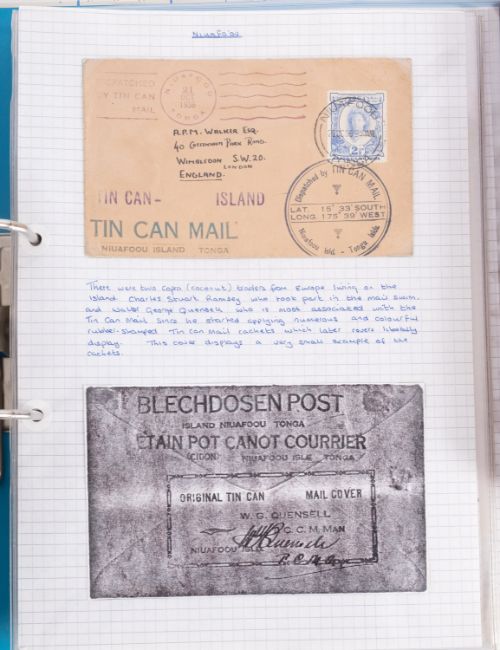 Niuafo'ou
DISPATCHED
BY TIN CAN
MAIL
NIUAFOOU
21
1936
TONGA
A.P.M. Walker Esq.
40 Greenham Park Road.
Wimbledon S.W. 20.
London
ENGLAND.
NIUAFOOU
TONGA
TIN CAN- ISLAND
TIN CAN MAIL
NIUAFOOU ISLAND TONGA
Dispatched by TIN CAN MAIL
LAT. 15° 33' SOUTH
LONG. 175° 39' WEST
Niuafoou Isld. - Tonga Islds.
There were two copra (coconut) traders from Europe living on the
island Charles Stuart Ramsey who took part in the mail swim.
and Walter George Quensell who is most associated with the
Tin Can Mail since he started applying numerous and colourful
rubber-stamped Tin Can Mail cachets which later covers liberally
display. This cover displays a very small example of the
cachets.
BLECHDOSEN POST
ISLAND NIUAFOOU TONGA
ETAIN POT CANOT COURRIER
NIUAFOOU ISLE TONGA
ORIGINAL TIN CAN MAIL COVER
W. G. QUENSELL
C. C. M. MAN
NIUAFOOU ISLD.